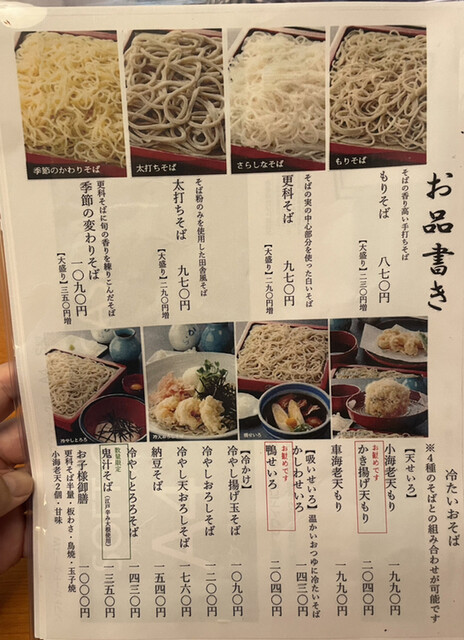 お品書き
冷たいおそば
※4種のそばとの組み合わせが可能です
もりそば
さらしなそば
太打ちそば
季節のかわりそば
そばの香り高い手打ちそば
もりそば 八七〇円
【大盛り】二三〇円増
そばの実の中心部分を使った白いそば
更科そば 九七〇円
【大盛り】二九〇円増
そば粉のみを使用した田舎風そば
太打ちそば 九七〇円
【大盛り】二九〇円増
更科そばに旬の香りを練りこんだそば
季節の変わりそば 一〇九〇円
【大盛り】三五〇円増
鴨せいろ
冷やしとろろ
【天せいろ】
小海老天もり 一九九〇円
お勧めです
かき揚げ天もり 二〇四〇円
車海老天もり 一九九〇円
【吸いせいろ】温かいおつゆに冷たいそば
かしわせいろ 一四三〇円
お勧めです
鴨せいろ 二〇四〇円
【冷かけ】
冷やし揚げ玉そば 一〇九〇円
冷やしおろしそば 一二〇〇円
冷やし天おろしそば 一七六〇円
納豆そば 一五四〇円
冷やしとろろそば 一四三〇円
数量限定
鬼汁そば(江戸辛み大根使用) 一三五〇円
お子様御膳 一〇〇〇円
更科そば半量・板わさ・鳥焼・玉子焼
小海老天2個・甘味